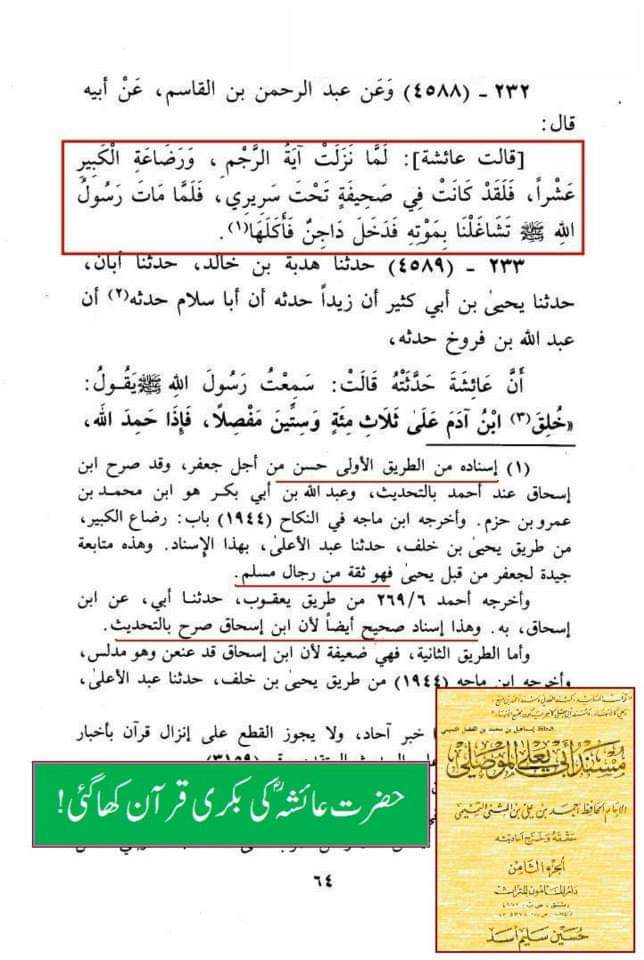 ٢٣٢ - (٤٥٨٨) وَعَن عبد الرحمن بن القاسم، عَنْ أبيه
قال:
[قالت عائشة]: لَمَّا نَزَلَتْ آيَةُ الرَّجْمِ، وَرَضَاعَةِ الْكَبِيرِ
عَشْراً، فَلَقَدْ كَانَتْ فِي صَحِيفَةٍ تَحْتَ سَرِيرِي، فَلَمَّا مَاتَ رَسُولُ
اللهِ ﷺ تَشَاغَلْنَا بِمَوْتِهِ فَدَخَلَ دَاجِنٌ فَأَكَلَهَا(١).
٢٣٣ - (٤٥٨٩) حدثنا هدبة بن خالد، حدثنا أبان،
حدثنا يحيىٰ بن أبي كثير أن زيداً حدثه أن أبا سلام حدثه(٢) أن
عبد الله بن فروخ حدثه،
أَنَّ عَائِشَةَ حَدَّثَتْهُ قَالَتْ: سَمِعْتُ رَسُولَ اللهِ ﷺ يَقُولُ:
«خُلِقَ(٣) ابْنُ آدَمَ عَلَىٰ ثَلَاثِ مِئَةٍ وَسِتِّينَ مَفْصِلًا، فَإِذَا حَمِدَ الله،
(١) إسناده من الطريق الأولى حسن من أجل جعفر، وقد صرح ابن
إسحاق عند أحمد بالتحديث، وعبد الله بن أبي بكر هو ابن محمد بن
عمرو بن حزم. وأخرجه ابن ماجه في النكاح (١٩٤٤) باب: رضاع الكبير،
من طريق يحيىٰ بن خلف، حدثنا عبد الأعلىٰ، بهذا الإسناد. وهذه متابعة
جيدة لجعفر من قبل يحيىٰ فهو ثقة من رجال مسلم.
وأخرجه أحمد ٢٦٩/٦ من طريق يعقوب، حدثنا أبي، عن ابن
إسحاق، به. وهذا إسناد صحيح أيضاً لأن ابن إسحاق صرح بالتحديث.
وأما الطريق الثانية، فهي ضعيفة لأن ابن إسحاق قد عنعن وهو مدلس،
وأخرجه ابن ماجه (١٩٤٤) من طريق يحيىٰ بن خلف، حدثنا عبد الأعلىٰ،
خبر آحاد، ولا يجوز القطع على إنزال قرآن بأخبار
حضرت عائشہؓ کی بکری قرآن کھا گئی!
٦٤
الحافظ إسماعيل بن محمد بن الفضل التميمي
مُسْنَدُ أَبِي يَعْلَى الْمَوْصِلِي
الإمام الحافظ أحمد بن علي بن المثنى التميمي
حققه وخرج أحاديثه
الجزء الثامن
دار المأمون للتراث
حسين سليم أسد